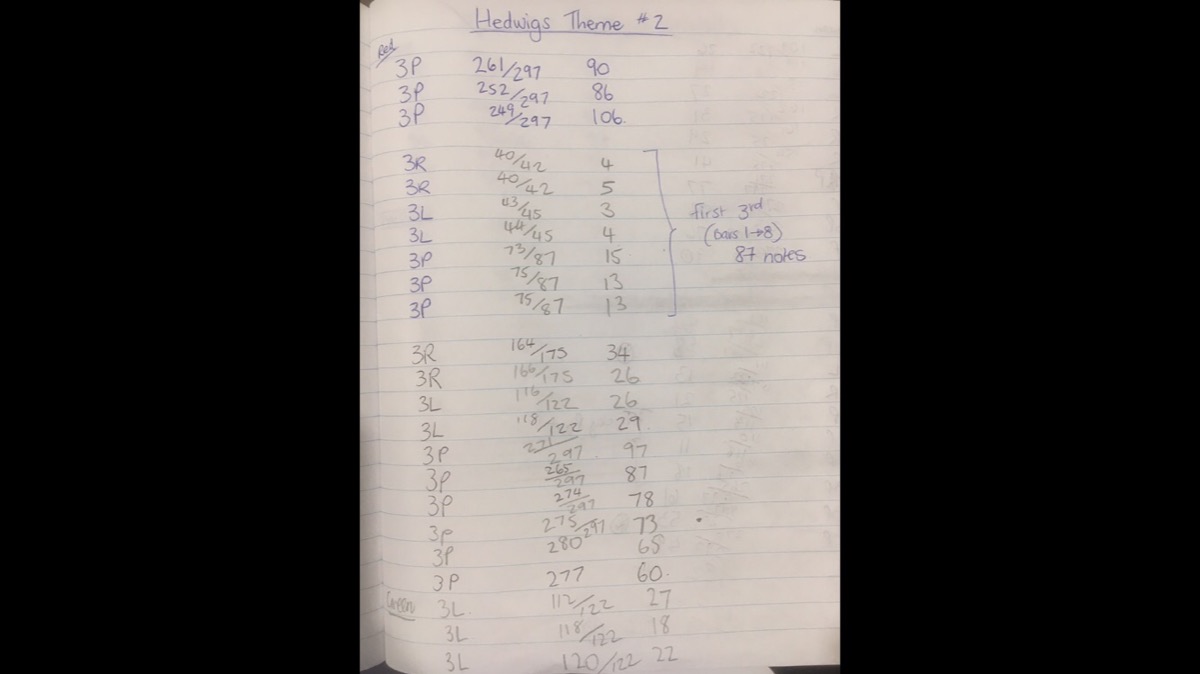 Hedwigs Theme #2
Red
3P 261/297 90
3P 252/297 86
3P 249/297 106.
3R 40/42 4
3R 40/42 5
3L 43/45 3
3L 44/45 4
3P 73/87 15
3P 75/87 13
3P 75/87 13
first 3rd
(Bars 1→8)
87 notes
3R 164/175 34
3R 166/175 26
3L 116/122 26
3L 118/122 29
3P 271/297 97
3P 265/297 87
3P 274/297 78
3P 275/297 73
3P 280 65
3P 277 60.
Green 3L 112/122 27
3L 118/122 18
3L 120/122 22